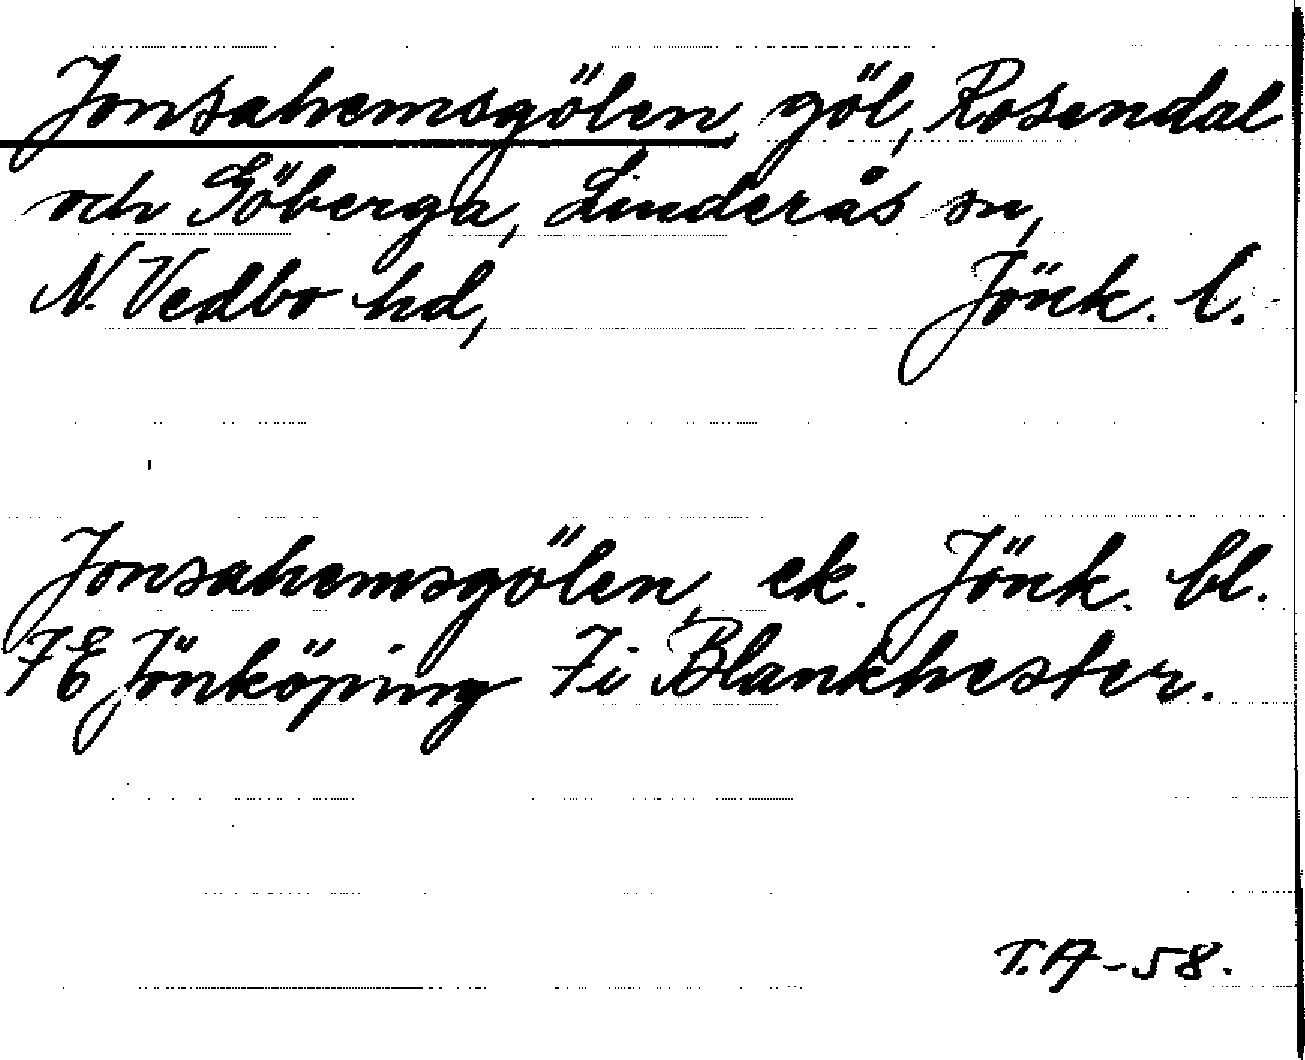 Jonsahemsgölen, göl, Rosendal
och Göberga, Linderås sn,
N. Vedbo hd, Jönk. l.
Jonsahemsgölen, ek. Jönk. bl.
7E Jönköping 7i Blankhester.
T.A-58.